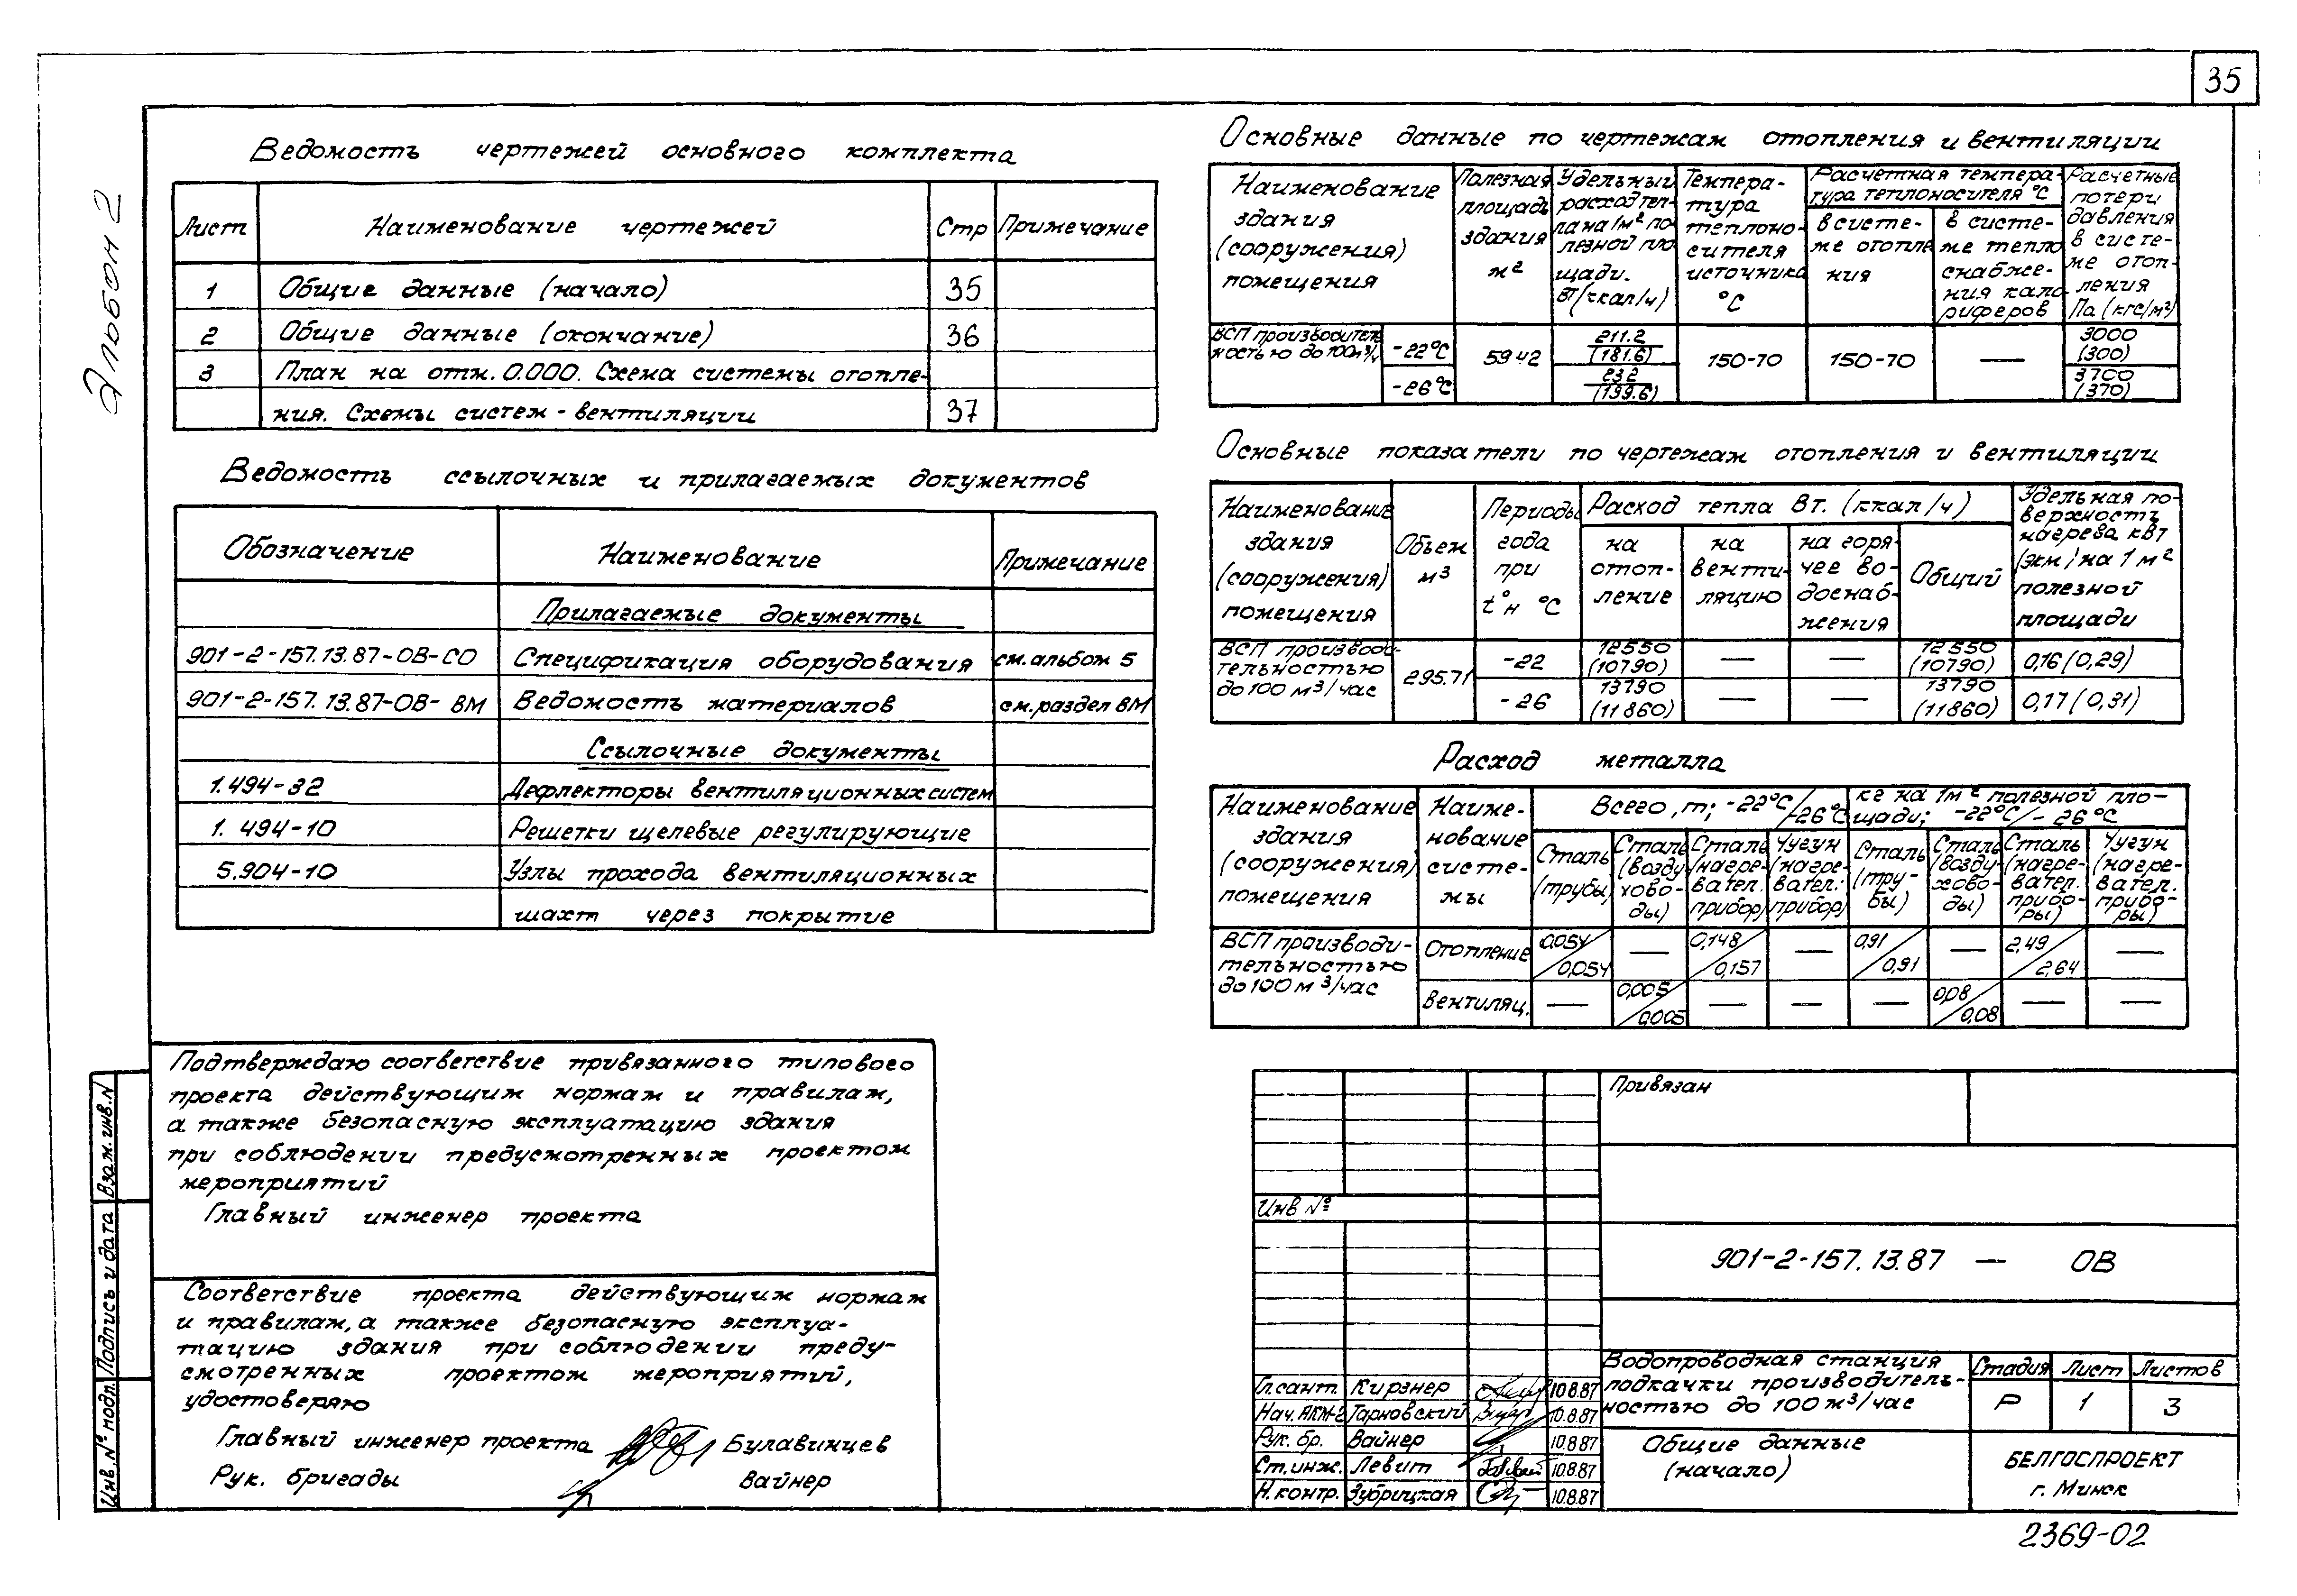 35
Альбом 2
Ведомость чертежей основного комплекта
Лист Наименование чертежей Стр Примечание
1 Общие данные (начало) 35
2 Общие данные (окончание) 36
3 План на отм. 0.000. Схема системы отопле-
ния. Схемы систем - вентиляции 37
Ведомость ссылочных и прилагаемых документов
Обозначение Наименование Примечание
Прилагаемые документы
901-2-157.13.87-ОВ-СО Спецификация оборудования см. альбом 5
901-2-157.13.87-ОВ-ВМ Ведомость материалов см. раздел ВМ
Ссылочные документы
1.494-32 Дефлекторы вентиляционных систем
1.494-10 Решетки щелевые регулирующие
5.904-10 Узлы прохода вентиляционных
шахт через покрытие
Основные данные по чертежам отопления и вентиляции
Наименование
здания
(сооружения)
помещения
Полезная
площадь
здания
м²
Удельный
расход теп-
ла на 1м² по-
лезной пло
щади.
Вт/(ккал/ч)
Темпера-
тура
теплоно-
сителя
источника
°С
Расчетная темпера-
тура теплоносителя °С
в систе-
ме отопле
ния
в систе-
ме тепло
снабже-
ния кало
риферов
Расчетные
потери
давления
в систе-
ме отоп-
ления
Па (кгс/м²)
ВСП производитель
ностью до 100м³/ч
-22°С 59.42 211.2 150-70 150-70 — 3000
(181.6) (300)
-26°С 232 3700
(199.6) (370)
Основные показатели по чертежам отопления и вентиляции
Наименование
здания
(сооружения)
помещения
Объем
м³
Периоды
года
при
t°н °С
Расход тепла Вт. (ккал/ч)
на
отоп-
ление
на
венти-
ляцию
на горя-
чее во-
доснаб-
жения
Общий
Удельная по-
верхность
нагрева кВт
(экм) на 1 м²
полезной
площади
ВСП производи-
тельностью
до 100 м³/час
295.71
-22 12550 — — 12550 0,16 (0,29)
(10790) (10790)
-26 13790 — — 13790 0,17 (0,31)
(11860) (11860)
Расход металла
Наименование
здания
(сооружения)
помещения
Наиме-
нование
систе-
мы
Всего, т; -22°С/-26°С
кг на 1м² полезной пло-
щади; -22°С/-26°С
Сталь
(трубы)
Сталь
(возду
хово-
ды)
Сталь
(нагре-
вател.
прибор)
Чугун
(нагре-
вател.
прибор)
Сталь
(тру-
бы)
Сталь
(возду-
хово-
ды)
Сталь
(нагре-
вател.
прибо-
ры)
Чугун
(нагре-
вател.
прибо-
ры)
ВСП производи-
тельностью
до 100 м³/час
Отопление 0,054/0,054 — 0,148/0,157 — 0,91/0,91 — 2,49/2,64 —
Вентиляц. — 0,005/0,005 — — — 0,08/0,08 — —
Подтверждаю соответствие привязанного типового
проекта действующим нормам и правилам,
а также безопасную эксплуатацию здания
при соблюдении предусмотренных проектом
мероприятий
Главный инженер проекта
Соответствие проекта действующим нормам
и правилам, а также безопасную эксплуа-
тацию здания при соблюдении преду-
смотренных проектом мероприятий,
удостоверяю
Главный инженер проекта Булавинцев
Рук. бригады Вайнер
Инв. № подл. Подпись и дата Взам. инв. N
Привязан
Инв №
901-2-157.13.87 — ОВ
Гл. сант. Кирзнер 10.8.87
Нач. АКМ-2 Тарновский 10.8.87
Рук. бр. Вайнер 10.8.87
Ст. инж. Левит 10.8.87
Н. контр. Зубрицкая 10.8.87
Водопроводная станция
подкачки производитель-
ностью до 100 м³/час
Стадия Лист Листов
Р 1 3
Общие данные
(начало)
БЕЛГОСПРОЕКТ
г. Минск
2369-02